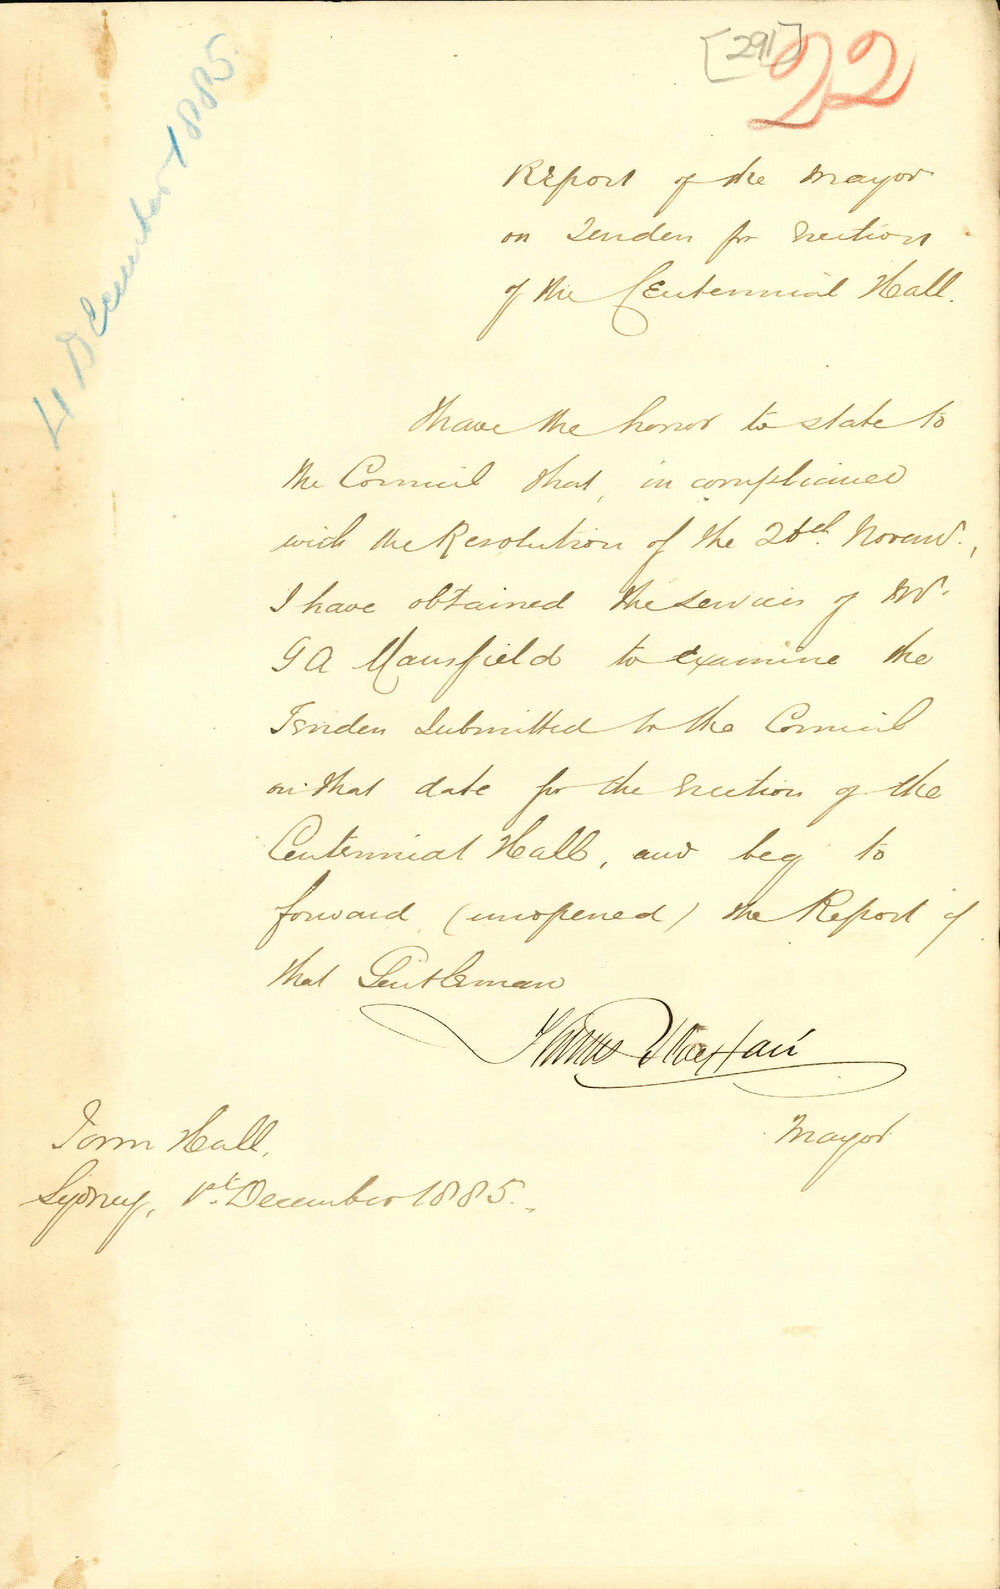 [291] 22
4 December 1885
Report of the Mayor
on Tenders for Erection
of the Centennial Hall.
I have the honor to state to
the Council that, in compliance
with the Resolution of the 26th. Novemr.,
I have obtained the services of Mr.
G A Mansfield to examine the
Tenders submitted to the Council
on that date for the Erection of the
Centennial Hall, and beg to
forward (unopened) the Report of
that Gentleman
Thomas Playfair
Mayor
Town Hall,
Sydney, 1st. December 1885.